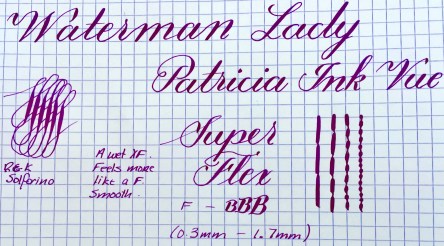 Waterman Lady
Patricia Ink Vue
Super
Flex
F - BBB
(0.3mm - 1.7mm)
A wet XF.
Feels more
like a F.
Smooth.
R&K
Solferino